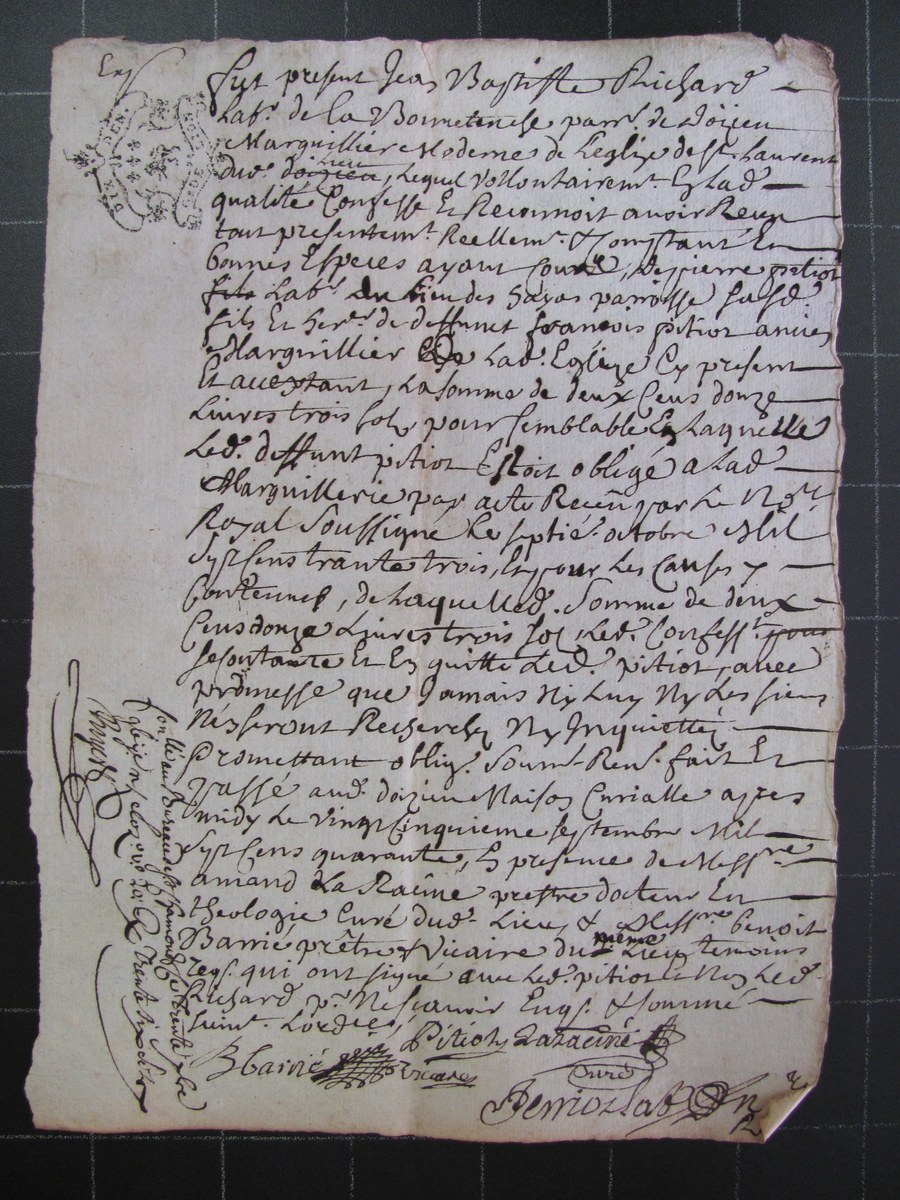 Fut present Jean Baptiste Richard
Lab.r de la Bonnetenche parr. de doizieu
Marguillier Moderne de Leglize de st. Laurent
dud. doizieu lieu, Lequel Vollontairem.t En lad.
qualité Confesse Et Reconnoit avoir Receu
tout presentem.t Reellem.t & Comptant En
bonnes Especes ayant Cours, de pierre pitiot
fils Lab.r du Lieu des hayes parroisse susd.
fils Et her.r de deffunct francois pitiot ancien
Marguillier de Lad. Eglize Cy present
Et acceptant, La somme de deux Cens donze
Livres trois sols pour semblable En Laquelle
Led. deffunt pitiot Estoit obligé a Lad.
Marguillerie par acte Receu par Le No.re
Royal soussigné Le septie. octobre Mil
sept Cens trante trois, Et pour Les Causes y
Contenues, de Laquelled. somme de deux
Cens donze Livres trois sols Led. Confess.t
se contante Et En quitte Led. pitiot, avec
promesse que Jamais Ny Luy Ny Les siens
N'en seront Recherches Ny Inquiettés
promettant oblig. soum. Ren. fait Et
passé aud. doizieu Maison Curialle apres
midy Le vingt Cinquieme septembre Mil
sept Cens quarante, En presence de Mess.re
amand La Racine prestre docteur En
theologie Curé dud. Lieu, & Mess.re benoit
Barrié prêtre & Vicaire du meme Lieu temoins
req. qui ont signé avec Led. pitiot & Non Led.
Richard p.r Ne scavoir Enq. & sommé
suiv.t Lord.ce
BBarrié vicaire Pitiot Laracine
Curé